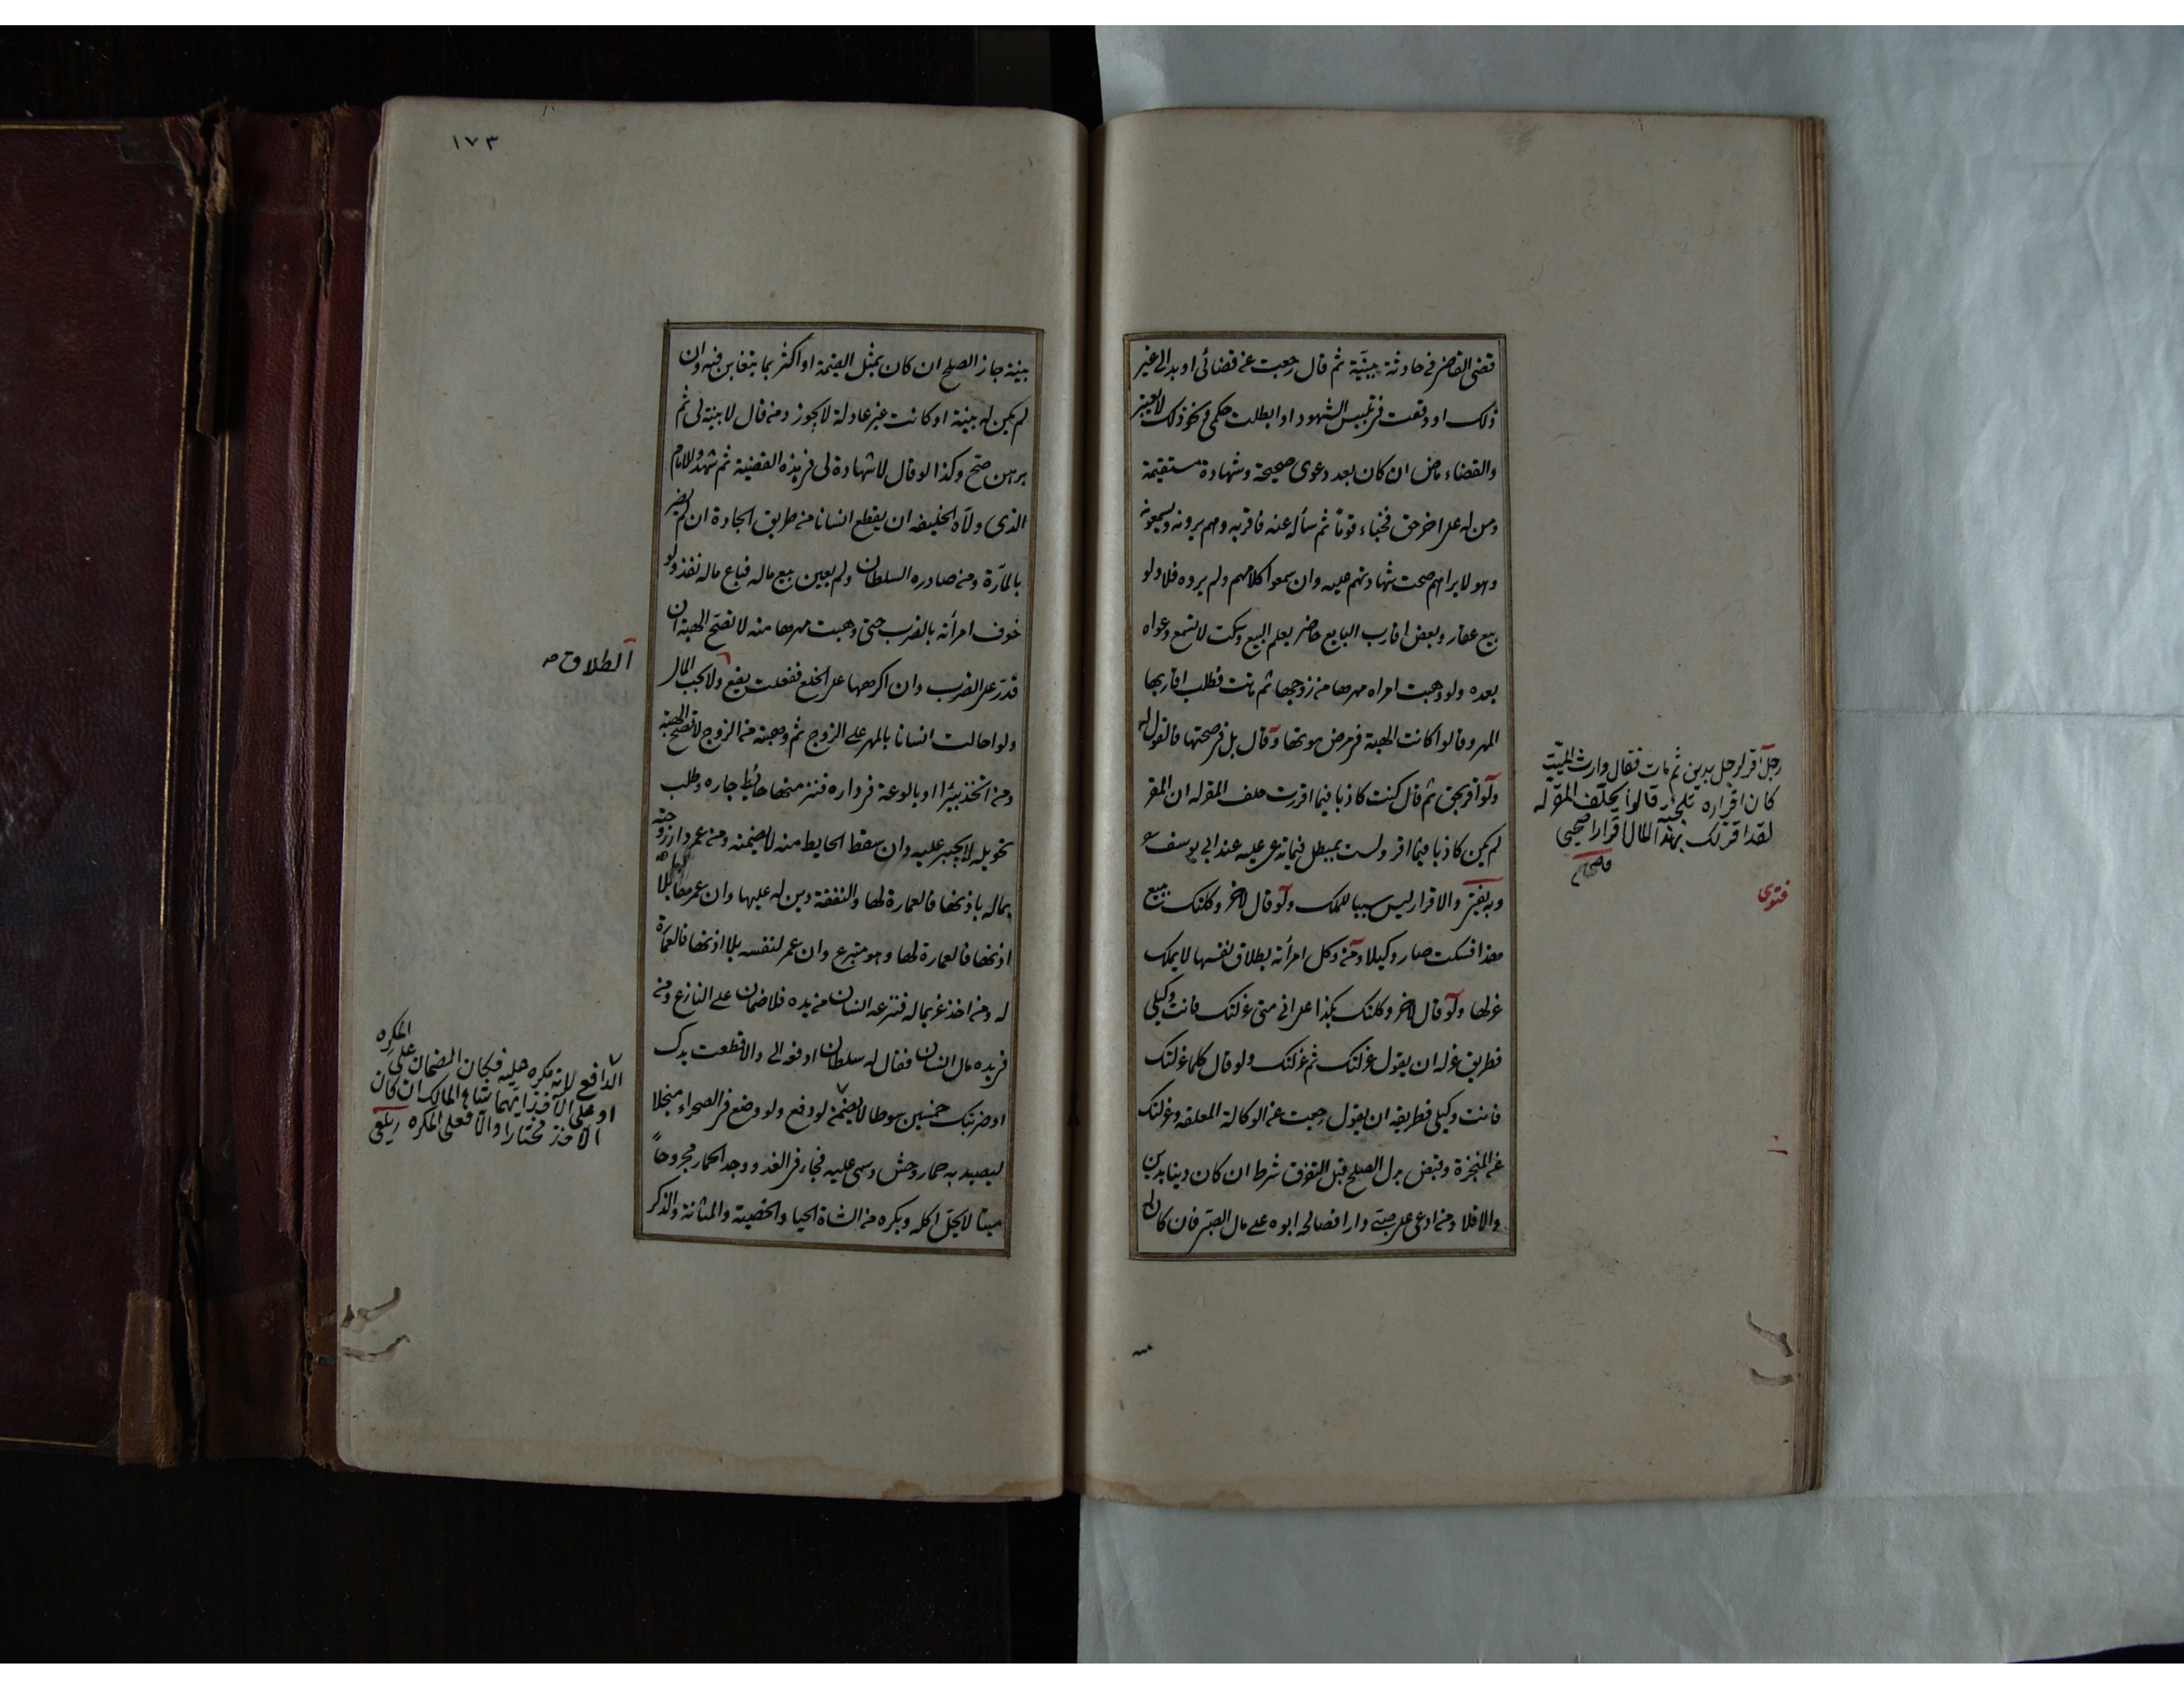 قضى القاضى فى حادثة ببينة ثم قال رجعت عن قضائى او بدا لى غير
ذلك او وقعت فى تلبيس الشهود او ابطلت حكمى ونحو ذلك لا يعتبر
والقضاء ماض ان كان بعد دعوى صحيحة وشهادة مستقيمة
ومن له على اخر حق فخباء قوماً ثم سأله عنه فاقر به وهم يرونه ويسمعونه
وهو لا يراهم صحت شهادتهم عليه وان سمعوا كلامهم ولم يروه فلا ولو
بيع عقار وبعض اقارب البايع حاضر يعلم البيع وسكت لا تسمع دعواه
بعده ولو وهبت امراه مهرها من زوجها ثم ماتت فطلب اقاربها
المهر وقالوا كانت الهبة فى مرض موتها وقال بل فى صحتها فالقول له
ولو اقر بحق ثم قال كنت كاذبا فيما اقررت حلف المقر له ان المقر
لم يكن كاذبا فيما اقر ولست بمبطل فيما تدعى عليه عند ابى يوسف
وبه يفتى والاقرار ليس سببا للملك ولو قال لاخر وكلتك ببيع
هذا فسكت صار وكيلا ومن وكل امرأته بطلاق نفسها لا يملك
عزلها ولو قال لاخر وكلتك بكذا على انى متى عزلتك فانت وكيلى
فطريق عزله ان يقول عزلتك ثم عزلتك ولو قال كلما عزلتك
فانت وكيلى فطريقه ان يقول رجعت عن الوكالة المعلقه وعزلتك
عن المنجزة وقبض بدل الصلح قبل التفرق شرط ان كان دينا بدين
والا فلا ومن ادعى على صبى دارا فصالحه ابوه على مال الصبى فان كان له
رجل اقر لرجل بدين ثم مات فقال وارث الميت
كان اقراره تلجئة قالوا يحلف المقر له
لقد اقر لك بهذا المال اقرارا صحيحا
فتوى
١٧٣
بينة جاز الصلح ان كان بمثل القيمة او اكثر بما يتغابن فيه وان
لم يكن له بينة او كانت غير عادلة لا يجوز ومن قال لا بينة لى ثم
برهن صح وكذا لو قال لا شهادة لى فى هذه القضية ثم شهد وللامام
الذى ولاه الخليفه ان يقطع انسانا من طريق الجادة ان لم يضر
بالمارة ومن صادره السلطان ولم يعين بيع ماله فباع ماله نفذ ولو
خوف امرأته بالضرب حتى وهبت مهرها منه لا تصح الهبة ان
قدر على الضرب وان اكرهها على الخلع ففعلت يقع ولا يجب المال
ولو احالت انسانا بالمهر على الزوج ثم وهبته من الزوج لا تصح الهبة
ومن اتخذ بيرا او بالوعة فى داره فنز منها حائط جاره وطلب
تحويله لا يجبر عليه وان سقط الحايط منه لا يضمنه ومن عمر دار زوجته
بماله باذنها فالعمارة لها والنفقة دين له عليها وان عمرها لها بلا
اذنها فالعمارة لها وهو متبرع وان عمر لنفسه بلا اذنها فالعمارة
له ومن اخذ غريما له فنزعه انسان من يده فلا ضمان على النازع ومن
فى يده مال انسان فقال له سلطان ادفعه الى والا قطعت يدك
او ضربتك خمسين سوطا لا يضمن لو دفع ولو وضع فى الصحراء منجلا
ليصيد به حمار وحش وسمى عليه فجاء فى الغد ووجد الحمار مجروحاً
ميتا لا يحل اكله ويكره من الشاة الحيا والخصية والمثانة والذكر
الطلاق صح
الدافع لانه مكره عليه فكان الضمان على المكره
او على الآخذ ايهما شاء المالك ان كان
الآخذ مختارا والا فعلى المكره زيلعى